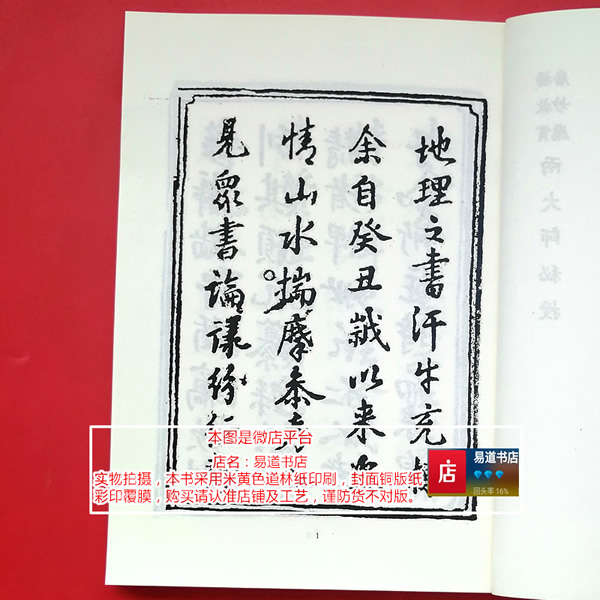 地理之書汗牛充
余自癸丑歲以来
情山水揣摩叅究
見眾書論議紛
兩大師秘授
本图是微店平台
店名：易道书店
实物拍摄，本书采用米黄色道林纸印刷，封面铜版纸
彩印覆膜，购买请认准店铺及工艺，谨防货不对版。
店
易道书店
回头率:16%
1